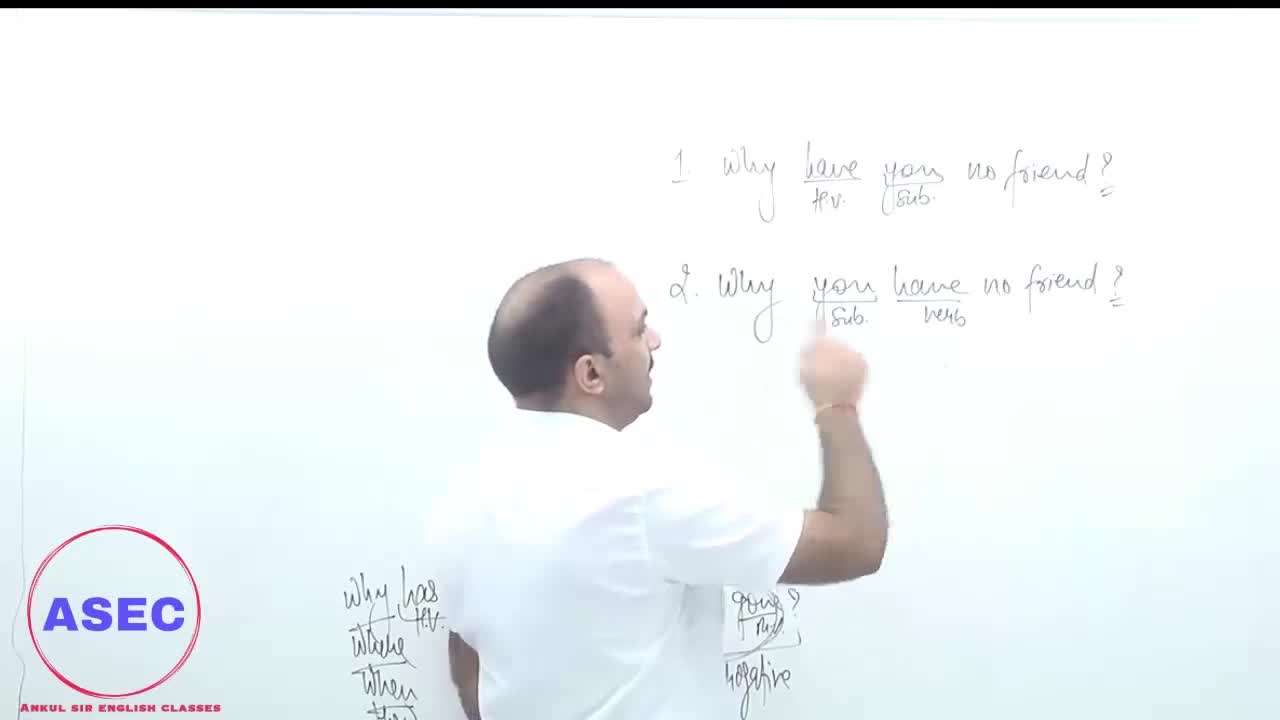 1. Why have you no friend?
H.V. Sub.
2. Why you have no friend?
Sub. verb
Why has gone?
H.V.
Where
When
negative
ASEC
ANKUL SIR ENGLISH CLASSES